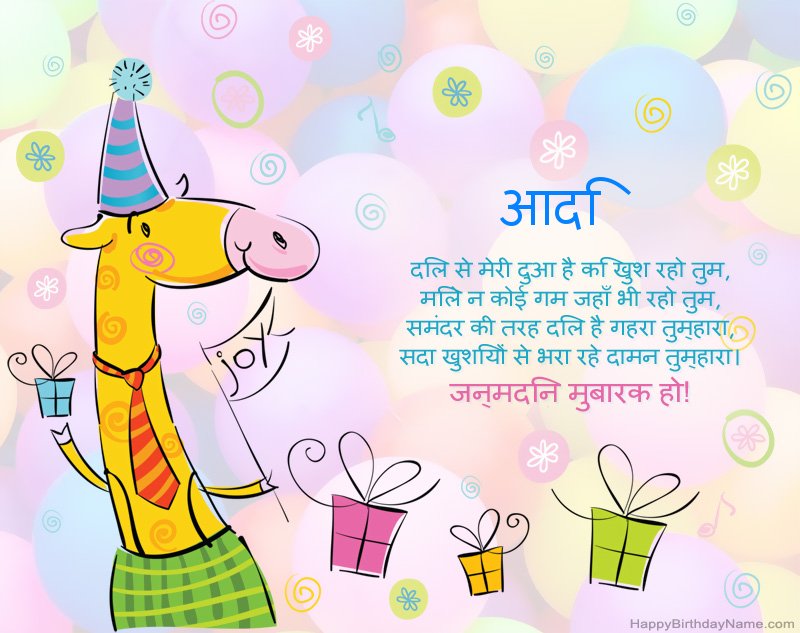 आदि
दिल से मेरी दुआ है कि खुश रहो तुम,
मिले न कोई गम जहाँ भी रहो तुम,
समंदर की तरह दिल है गहरा तुम्हारा,
सदा खुशियों से भरा रहे दामन तुम्हारा।
जन्मदिन मुबारक हो!
joy
HappyBirthdayName.com